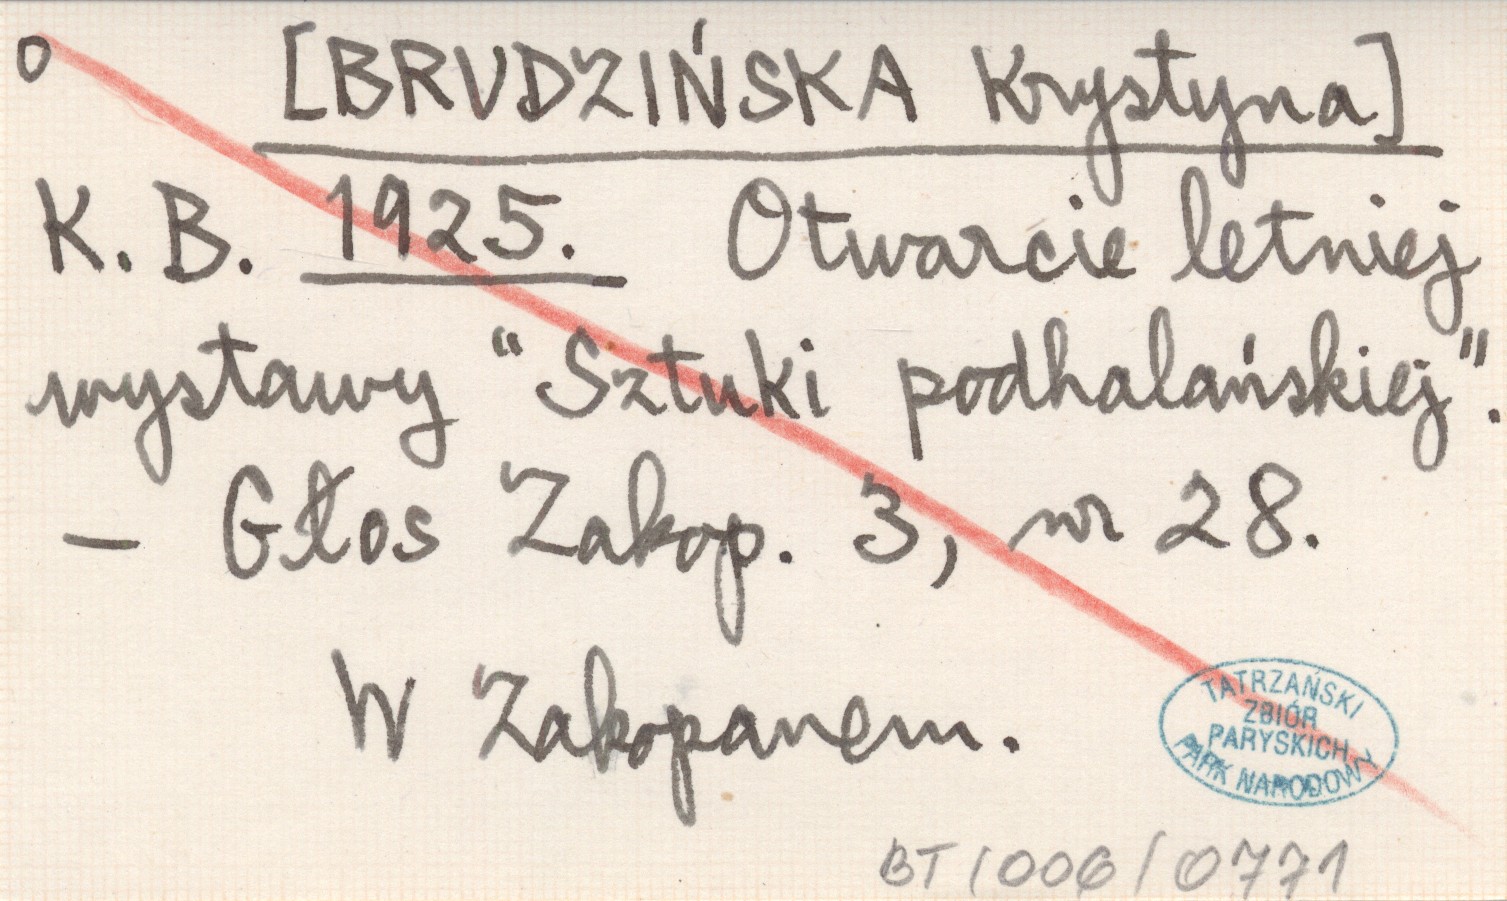 o [BRUDZIŃSKA Krystyna]
K. B. 1925. Otwarcie letniej
wystawy "Sztuki podhalańskiej".
— Głos Zakop. 3, nr 28.
W Zakopanem.
TATRZAŃSKI
ZBIÓR
PARYSKICH
PARK NARODOWY
BT/006/0771